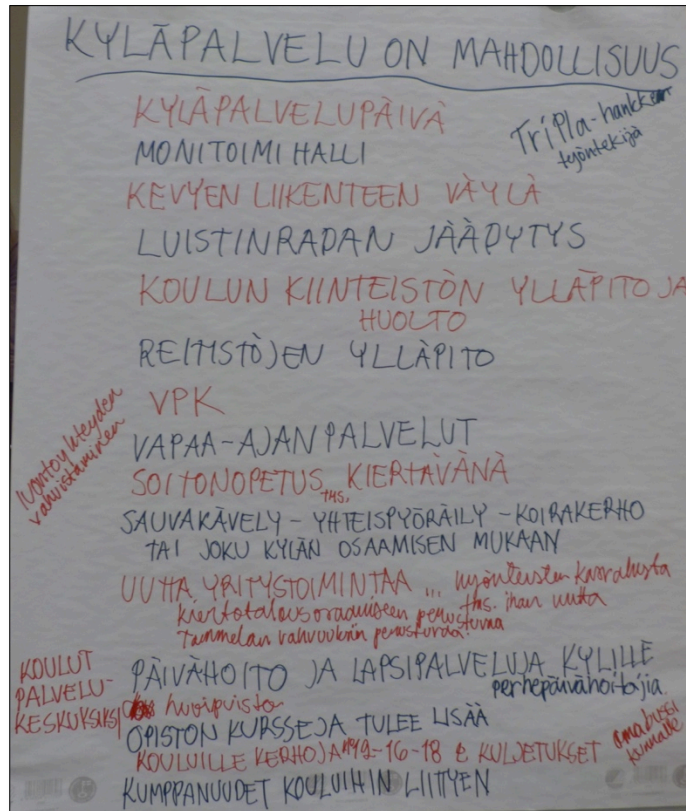 KYLÄPALVELU ON MAHDOLLISUUS
Tripla-hankkeen
työntekijä
KYLÄPALVELUPÄIVÄ
MONITOIMIHALLI
KEVYEN LIIKENTEEN VÄYLÄ
LUISTINRADAN JÄÄDYTYS
KOULUN KIINTEISTÖN YLLÄPITO JA
HUOLTO
REITISTÖJEN YLLÄPITO
VPK
luontoyhteyden
vahvistaminen
VAPAA-AJAN PALVELUT
SOITONOPETUS tms. KIERTÄVÄNÄ
SAUVAKÄVELY - YHTEISPYÖRÄILY - KOIRAKERHO
TAI JOKU KYLÄN OSAAMISEN MUKAAN
UUTTA YRITYSTOIMINTAA ... hyönteisten kasvatusta
kiertotalousosaamiseen perustuvaa tms. ihan uutta
Tammelan vahvuuksiin perustuvaa
KOULUT
PALVELU-
KESKUKSIKSI
PÄIVÄHOITO JA LAPSIPALVELUJA KYLILLE
perhepäivähoitajia
huvipuisto
OPISTON KURSSEJA TULEE LISÄÄ
KOULUILLE KERHOJA 16-18 KULJETUKSET
oma bussi
kunnalle
KUMPPANUUDET KOULUIHIN LIITTYEN